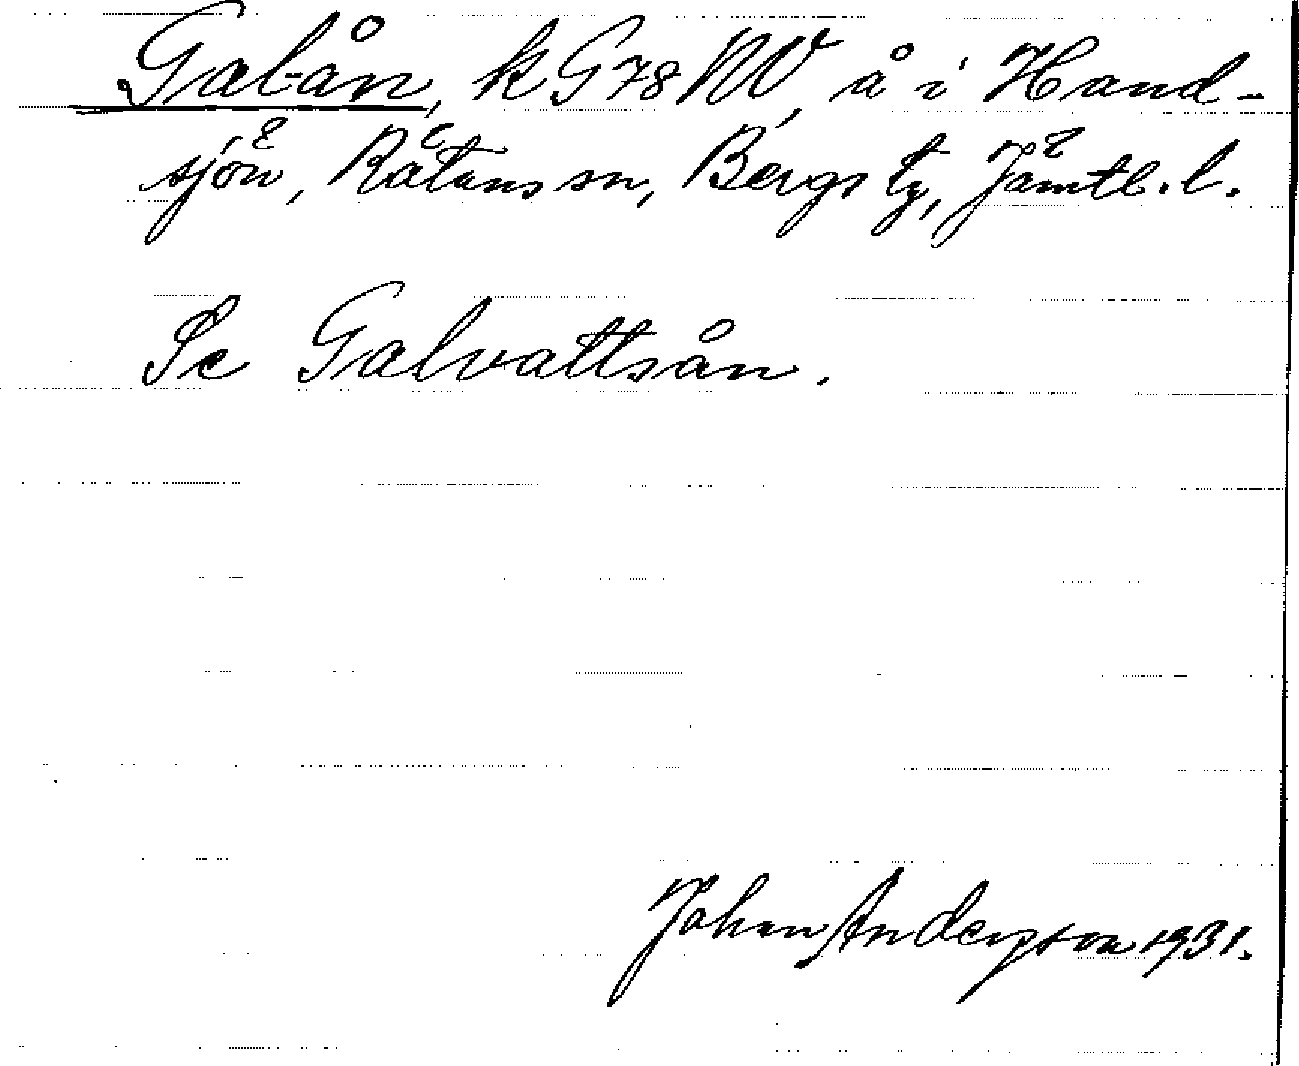 Galån, k G 78 NV, å i Hand-
sjön, Rätans sn, Bergs tg, Jämtl. l.
Se Galvattsån.
Johan Anderson 1931.